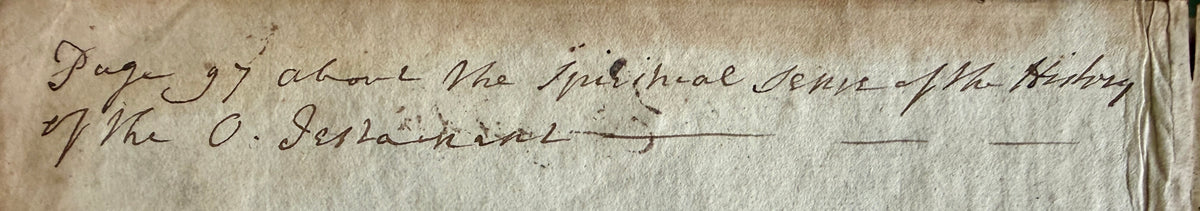 Page 97 about the Spiritual sense of the History
of the O. Testament